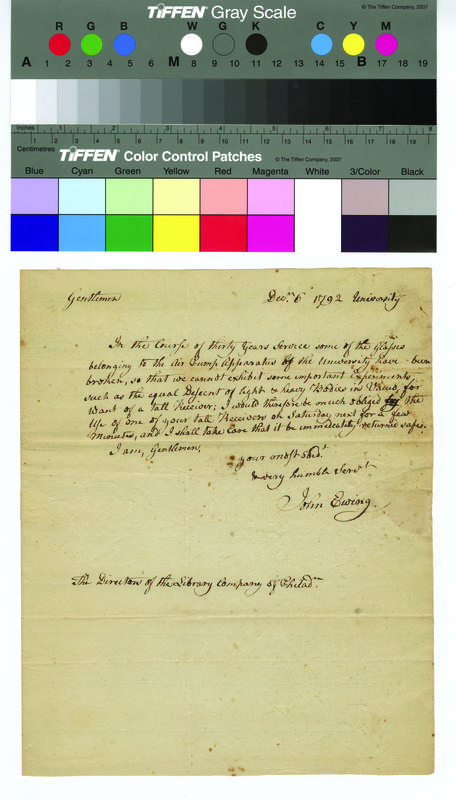 TIFFEN Gray Scale
© The Tiffen Company, 2007
R G B W G K C Y M
A 1 2 3 4 5 6 7 8 M 9 10 11 12 13 14 15 B 17 18 19
Inches 1 2 3 4 5 6 7 8
Centimetres 1 2 3 4 5 6 7 8 9 10 11 12 13 14 15 16 17 18 19
TIFFEN Color Control Patches © The Tiffen Company, 2007
Blue Cyan Green Yellow Red Magenta White 3/Color Black
Gentlemen Decr. 6 1792 University
In the Course of thirty Years Service some of the Glasses
belonging to the Air Pump Apparatus of the University have been
broken, so that we cannot exhibit some important Experiments,
such as the equal Descent of light & heavy Bodies in Vacuo, for
Want of a tall Receiver; I would therefore be much obliged by the
Use of one of your tall Receivers on Saturday next for a few
Minutes, and I shall take Care that it be immediately returned safe.
I am, Gentlemen,
your most obedt.
& very humble Servt.
John Ewing.
The Directors of the Library Company of Philada.